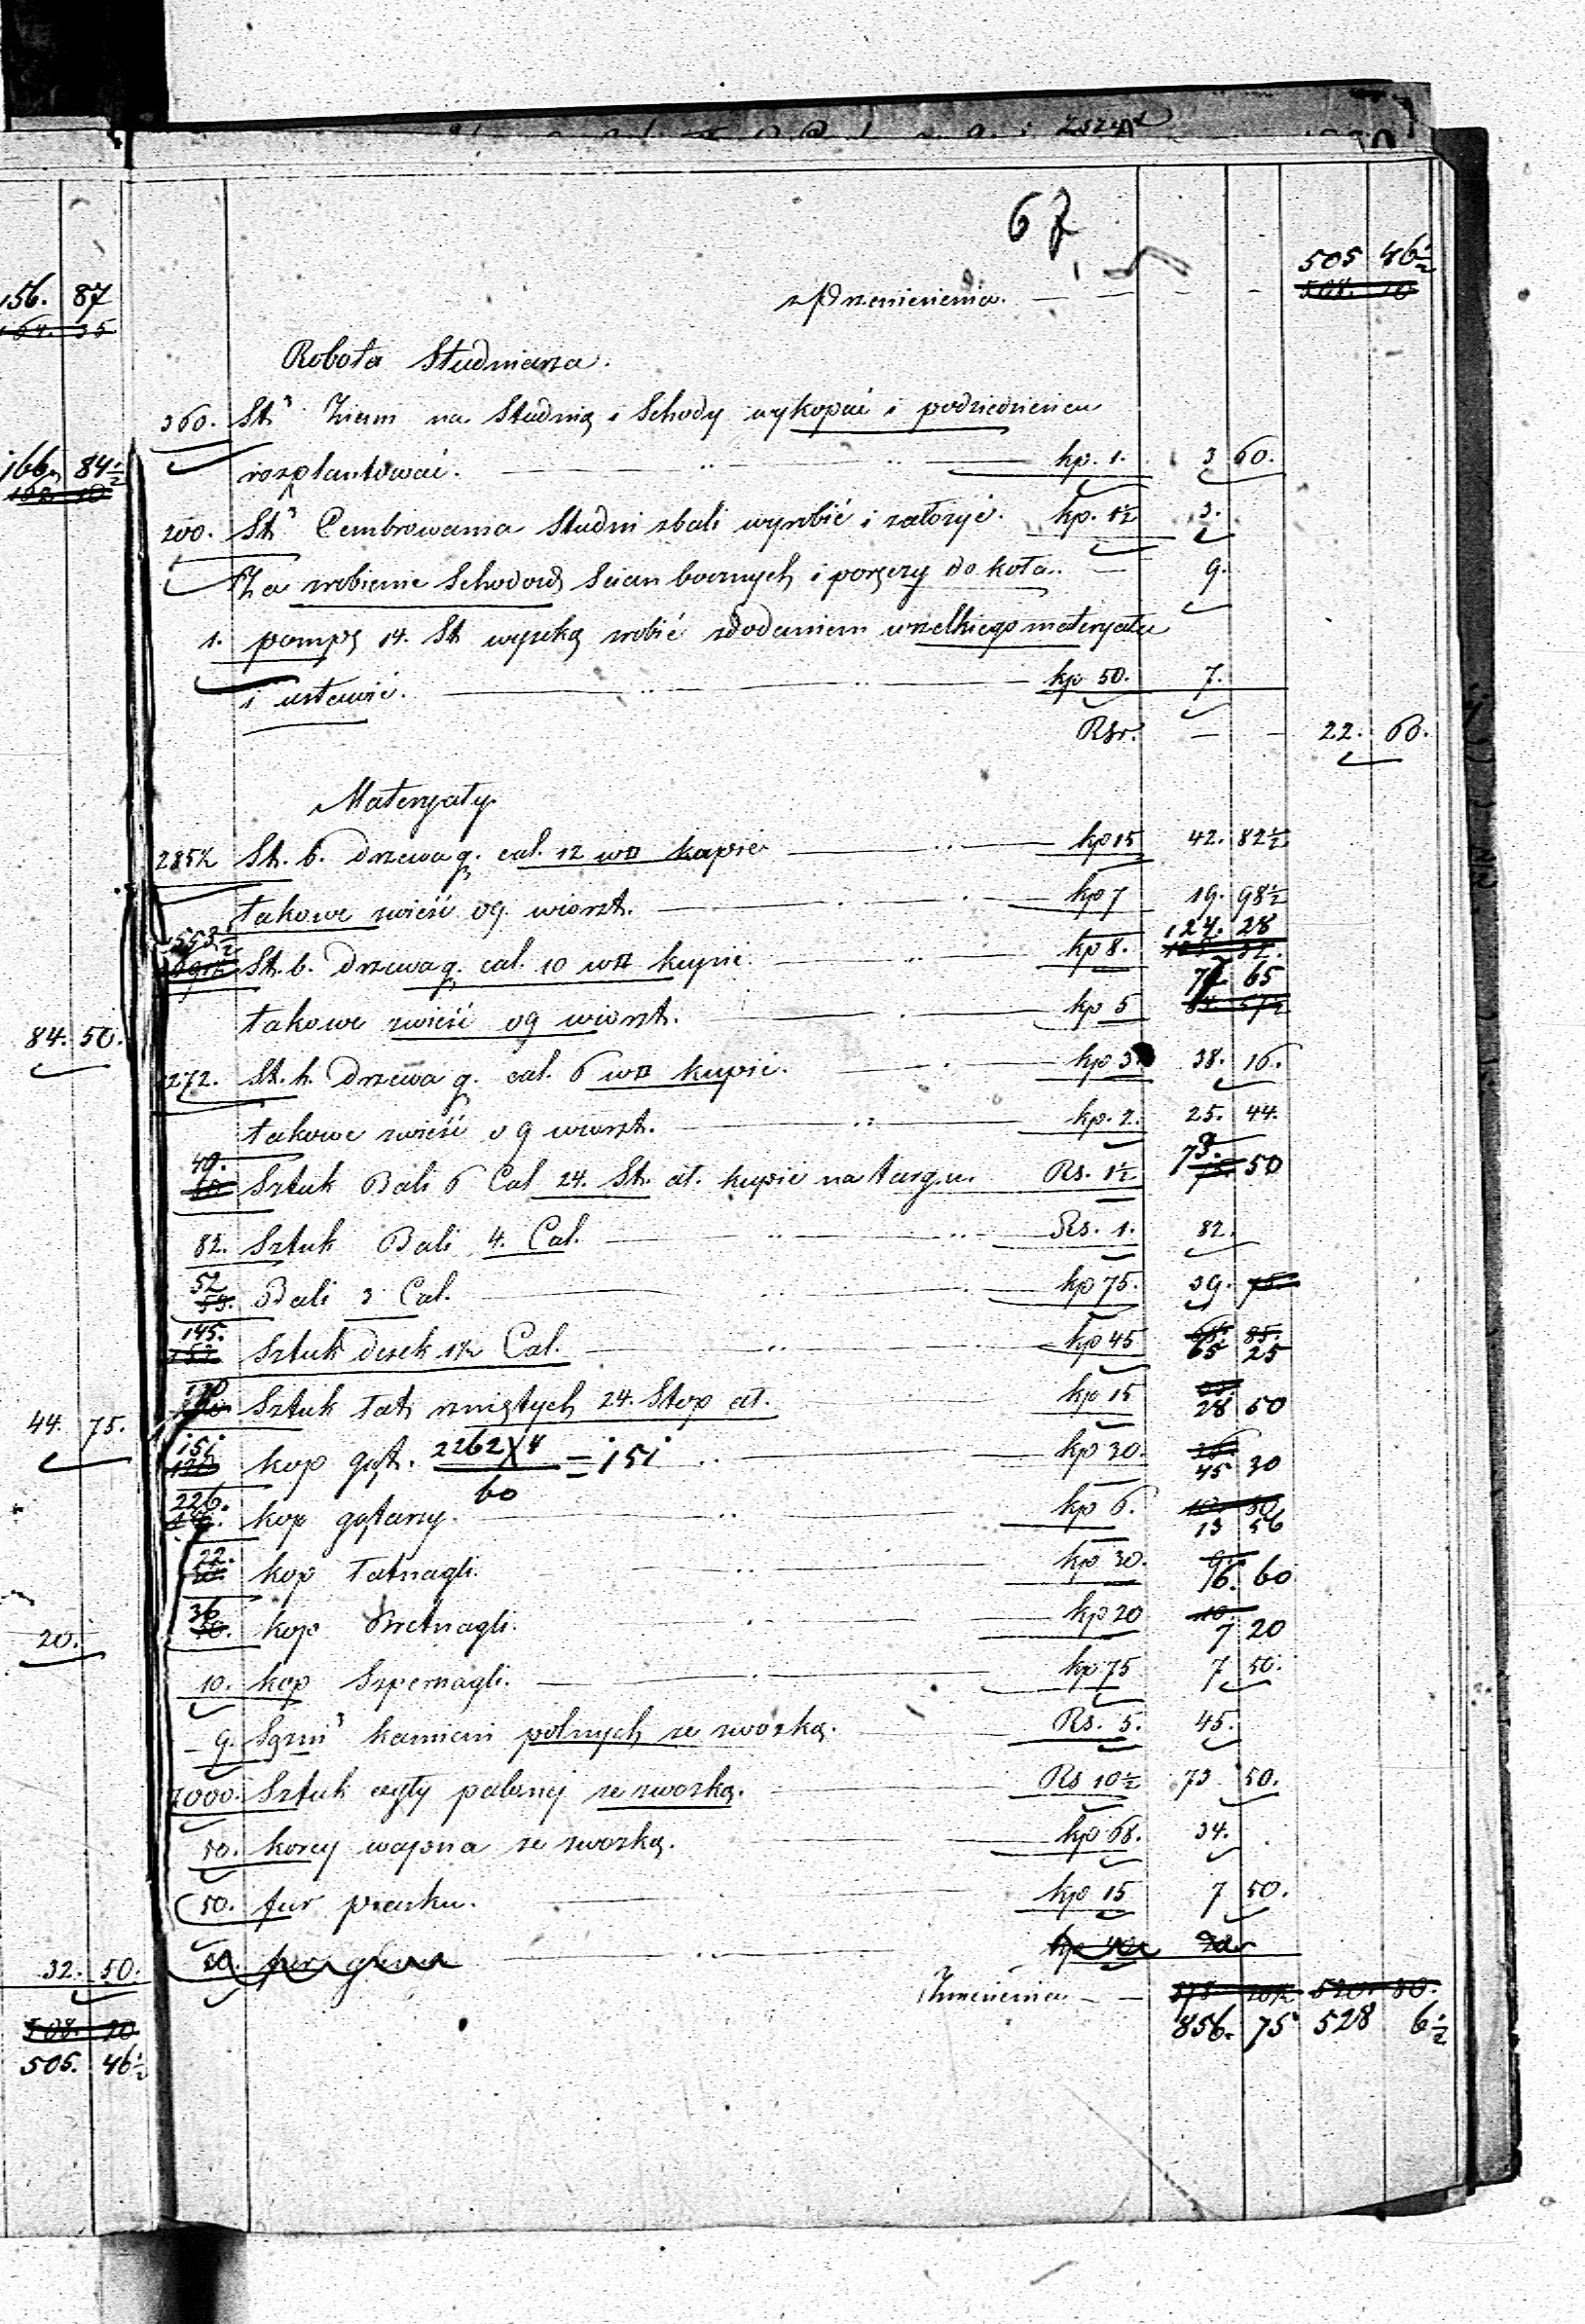 67
z Przeniesienia. — — — — 505 46½
508. 10
156. 87
164. 35
Robota Studniarza.
360. St³ Ziem na Studnią i Schody wykopać i podziedzieńcu
rozplantować. kp. 1. 3 60.
166. 84½
200. St³ Cembrowania Studni zbali wyrobić i założyć. kp. 1½ 3.
Za zrobienie Schodów Ścian bocznych i poręczy do koła. 9.
1. pompę 14. St wysoką zrobić zdodaniem wszelkiego materyału
i ustawić. kp 50. 7.
Rsr. — — 22. 60.
Materyały.
285½ St. b. drzewa g. cal. 12 w□ kupić kp 15 42. 82½
takowe zwieść o 9. wiorst. kp 7 19. 98½
1553½ St. b. drzewa g. cal. 10 w□ kupić. kp 8. 124. 28
takowe zwieść o 9 wiorst. kp 5 77 65
84. 50.
1272. St. b. drzewa g. cal. 6 w□ kupić. kp 3. 38. 16.
takowe zwieść o 9 wiorst. kp. 2. 25. 44.
49. Sztuk Bali 6 Cal 24. St. dł. kupić na targu. Rs. 1½ 73. 50
82. Sztuk Bali 4. Cal. Rs. 1. 82.
52 Bali 3 Cal. kp 75. 39. 75
53.
145. Sztuk desek 1½ Cal. kp 45 65 25
68. 85.
190 Sztuk łat rzniętych 24. Stop dł. kp 15 28 50
44. 75.
151 kop gąt. 2262 X 4 / 60 = 151 kp 30. 45 30
226. kop gątarzy. kp 6. 13 56
22. kop Łatnagli. kp 30. 6. 60
36 kop Bretnagli. kp 20 7 20
20.
10. kop Szpernagli. kp 75 7 50.
9. Sążni³ kamieni polnych ze zwózką. Rs. 5. 45.
7000. Sztuk cegły palonej ze zwózką. Rs 10½ 73. 50.
50. korcy wapna ze zwózką. kp 68. 34.
50. fur piasku. kp 15 7 50.
20. fur gliny
32. 50.
Przeniesienia — — 520. 80.
508. 20
856. 75 528 6½
505. 46½